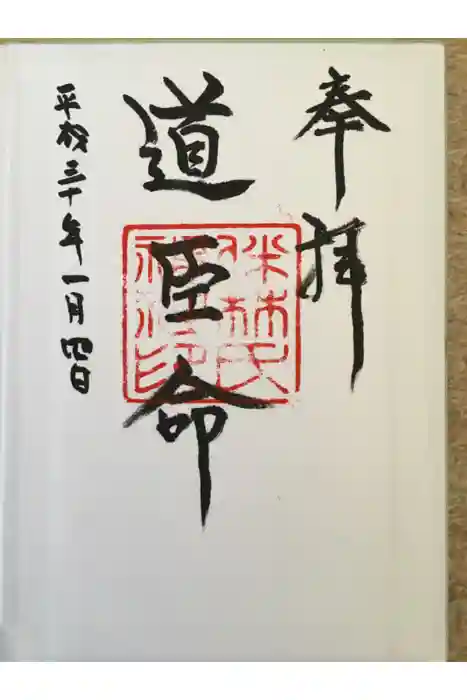 奉拝
道臣命
伴林氏神社印
平成三十年一月四日